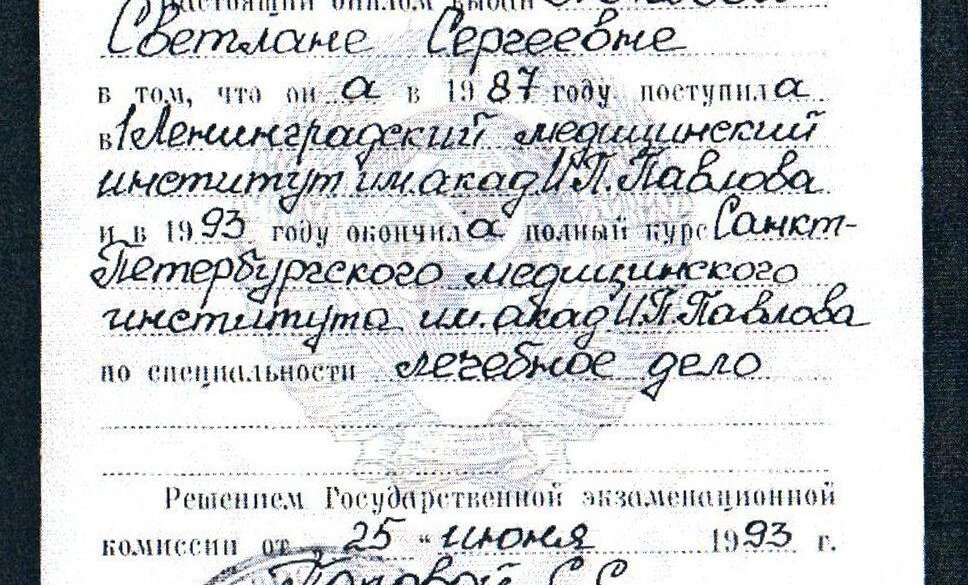 Настоящий диплом выдан
Светлане Сергеевне
в том, что он а в 1987 году поступил а
в 1 Ленинградский медицинский
институт им. акад И.П. Павлова
и в 1993 году окончил а полный курс Санкт-
Петербургского медицинского
института им. акад И.П. Павлова
по специальности лечебное дело
Решением Государственной экзаменационной
комиссии от „ 25 “ июня 1993 г.
Поповой С.С.